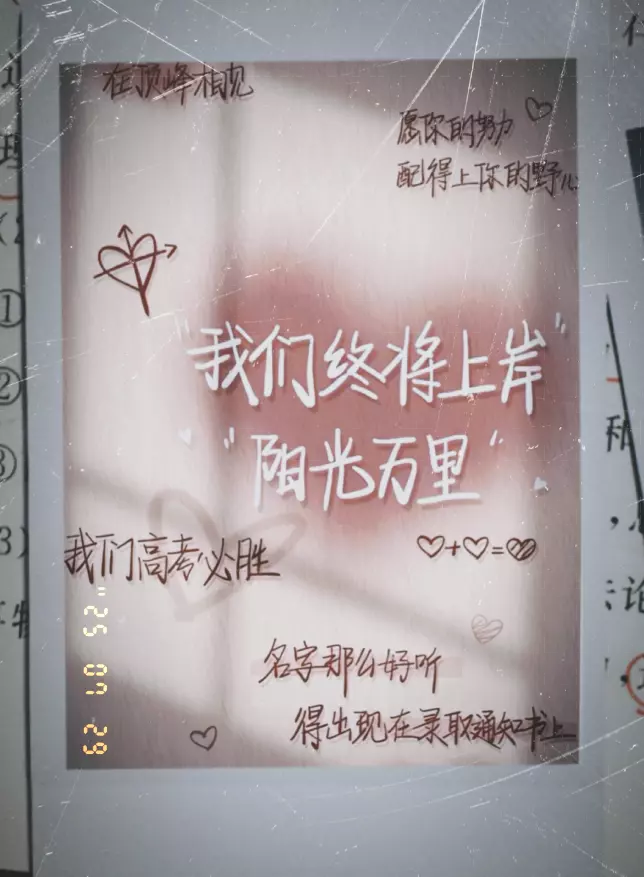 在顶峰相见
愿你的努力
配得上你的野心
"我们终将上岸"
"阳光万里"
我们高考必胜
♡+♡=♡
名字那么好听
得出现在录取通知书上
理
①
②
③
3)
和
论